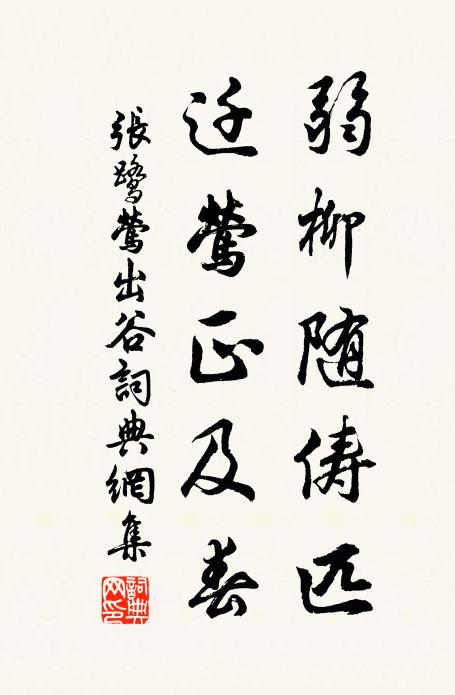 弱柳随俦匹
迁莺正及春
張鷺鶯出谷詞典網集
詞典網印